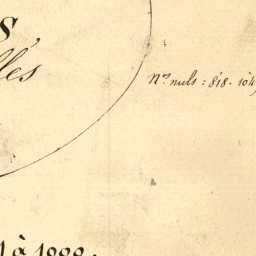 s,
lles
Nos nuls : 818 - 104
1 à 1000.